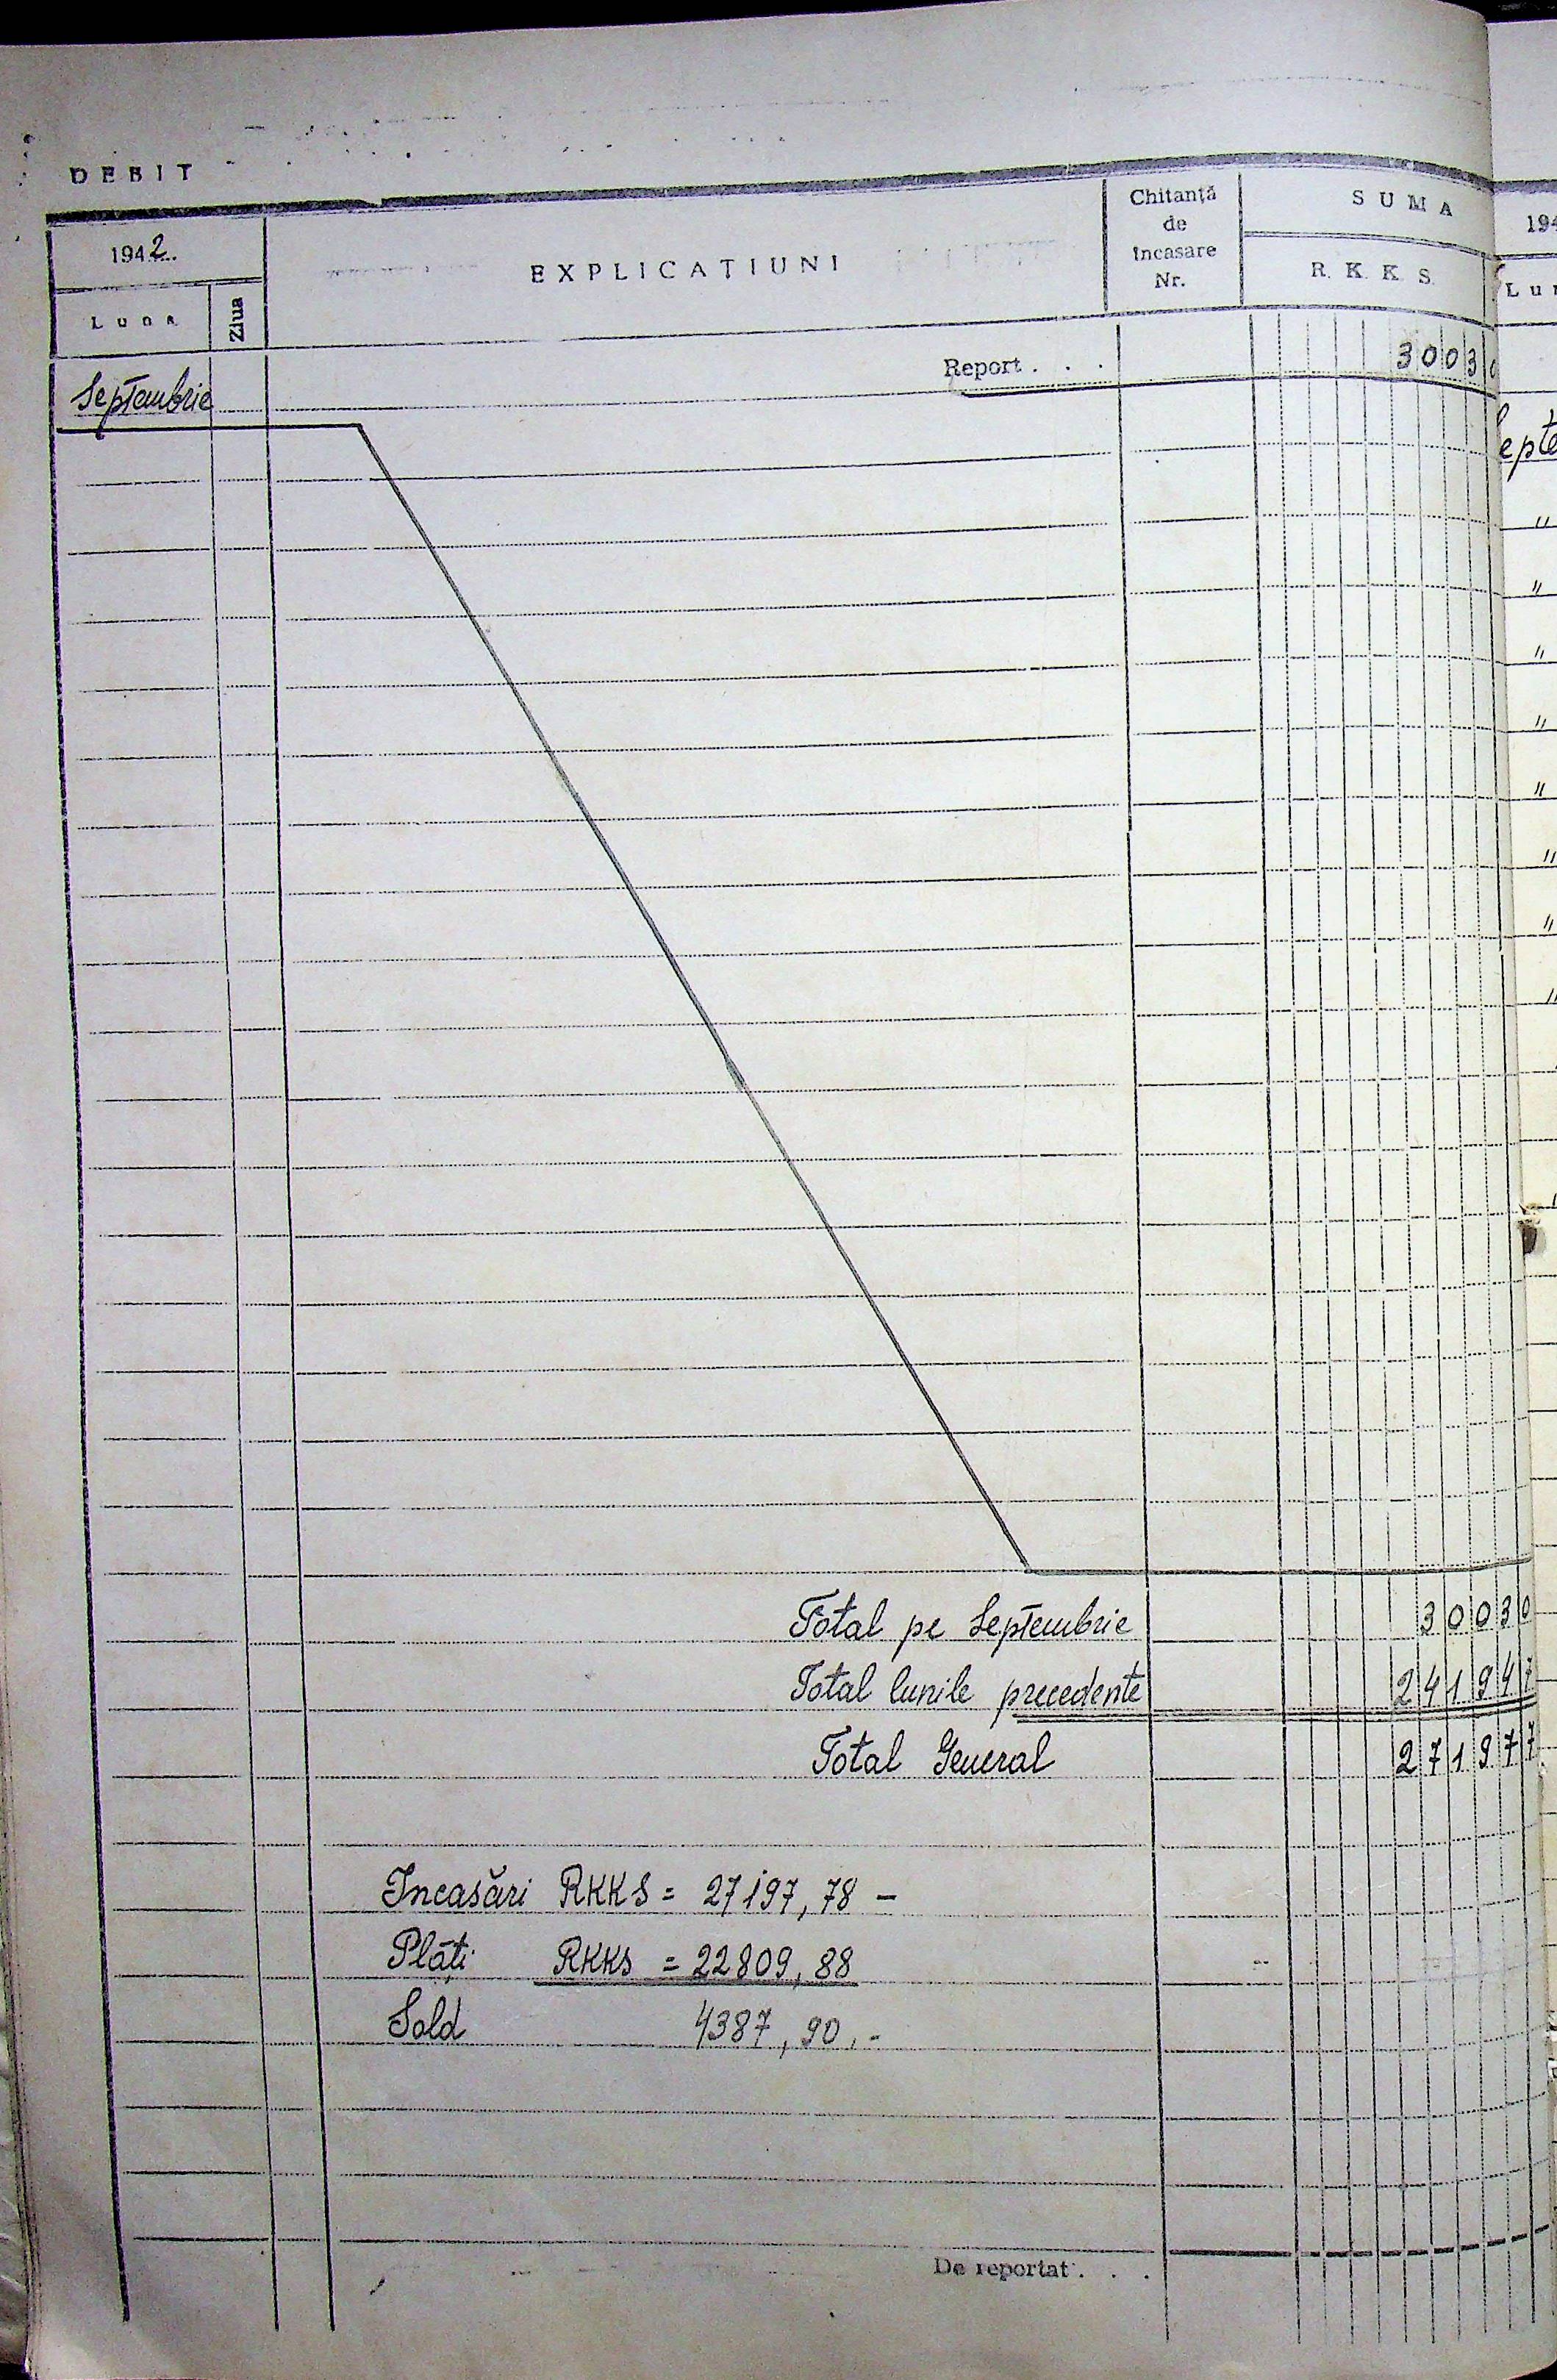 DEBIT
1942.. EXPLICAȚIUNI Chitanță de încasare Nr. SUMA
Luna Ziua R. K. K. S.
Report . . . 3003
Septembrie
Total pe Septembrie 30030
Total lunile precedente 241947
Total General 271977
Incasări RKKS = 27197,78 –
Plăți RKKS = 22809,88
Sold 4387,90.-
De reportat . . .
194
Lu
epte
"
"
"
"
"
"
"
"